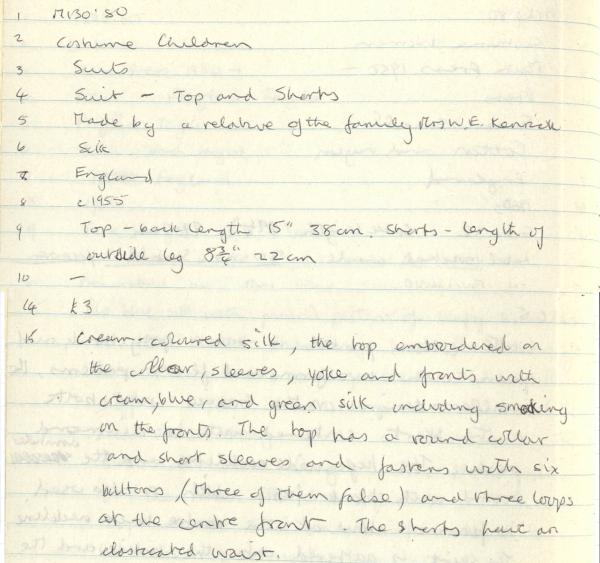 1 M130'80
2 Costume Children
3 Suits
4 Suit - Top and Shorts
5 Made by a relative of the family Mrs W.E. Kenrick
6 Silk
7 England
8 c1955
9 Top - back length 15" 38cm. Shorts - length of
outside leg 8 3/4" 22cm
10 -
14 £3
15 Cream-coloured silk, the top embroidered on
the collar, sleeves, yoke and fronts with
cream, blue, and green silk including smocking
on the fronts. The top has a round collar
and short sleeves and fastens with six
buttons (three of them false) and three loops
at the centre front. The shorts have an
elasticated waist.